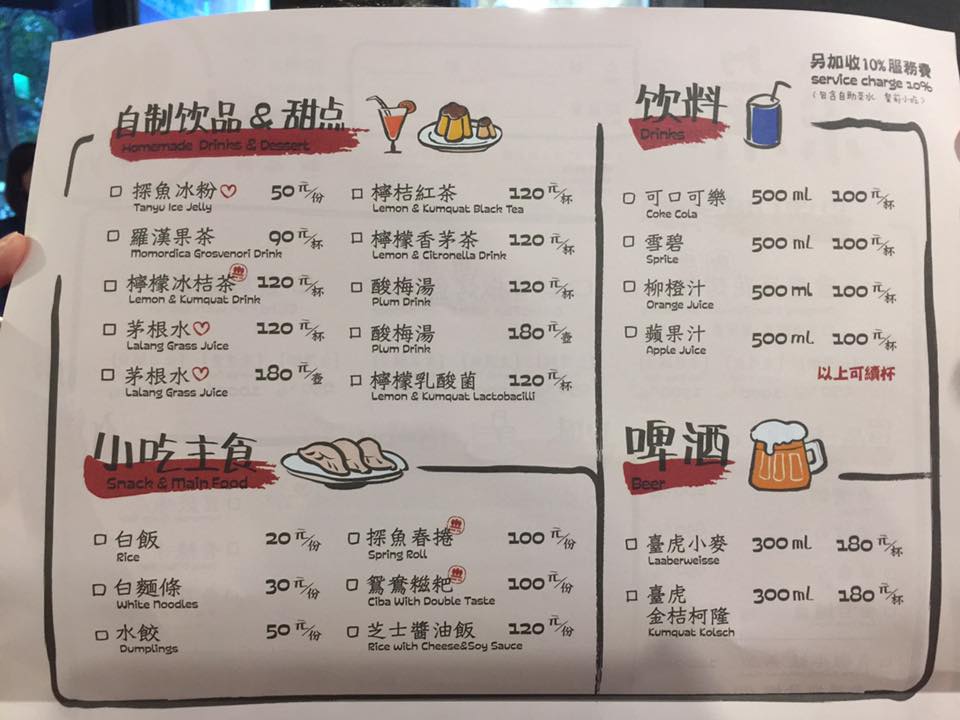 另加收10%服務費
service charge 10%
(包含自助茶水 餐前小吃)
自制饮品&甜点
Homemade Drinks & Dessert
探魚冰粉 50元/份
Tanyu Ice Jelly
羅漢果茶 90元/杯
Momordica Grosvenori Drink
檸檬冰桔茶 120元/杯
Lemon & Kumquat Drink
茅根水 120元/杯
Lalang Grass Juice
茅根水 180元/壺
Lalang Grass Juice
檸桔紅茶 120元/杯
Lemon & Kumquat Black Tea
檸檬香茅茶 120元/杯
Lemon & Citronella Drink
酸梅湯 120元/杯
Plum Drink
酸梅湯 180元/壺
Plum Drink
檸檬乳酸菌 120元/杯
Lemon & Kumquat Lactobacilli
饮料
Drinks
可口可樂 500 ml 100元/杯
Coke Cola
雪碧 500 ml 100元/杯
Sprite
柳橙汁 500 ml 100元/杯
Orange Juice
蘋果汁 500 ml 100元/杯
Apple Juice
以上可續杯
小吃主食
Snack & Main Food
白飯 20元/份
Rice
白麵條 30元/份
White Noodles
水餃 50元/份
Dumplings
探魚春捲 100元/份
Spring Roll
鴛鴦糍粑 100元/份
Ciba With Double Taste
芝士醬油飯 120元/份
Rice with Cheese&Soy Sauce
啤酒
Beer
臺虎小麥 300 ml 180元/杯
Laaberweisse
臺虎 300 ml 180元/杯
金桔柯隆
Kumquat Kolsch